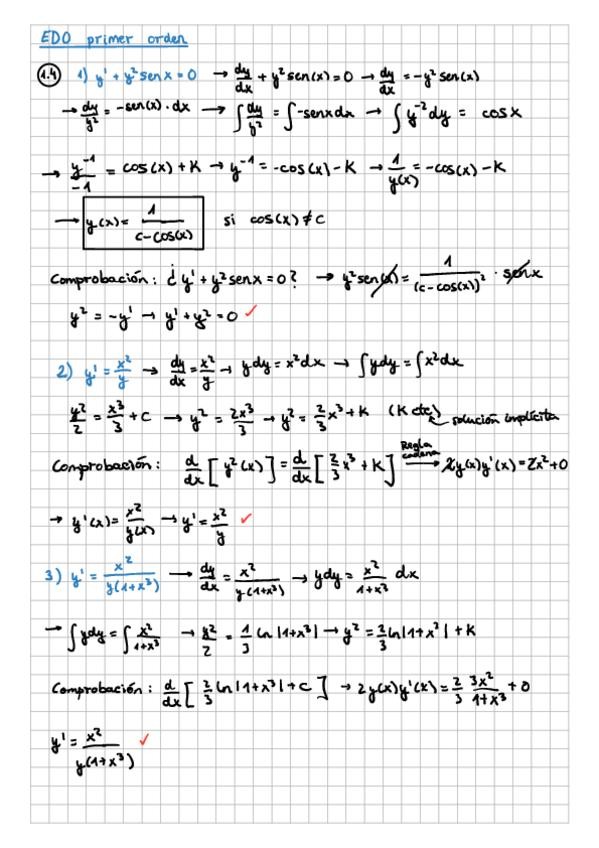 EDO primer orden
1.4 1) y' + y² sen x = 0 → dy/dx + y² sen(x) = 0 → dy/dx = -y² sen(x)
→ dy/y² = -sen(x) · dx → ∫ dy/y² = ∫ -senx dx → ∫ y⁻² dy = cos x
→ y⁻¹/-1 = cos(x) + K → y⁻¹ = -cos(x) - K → 1/y(x) = -cos(x) - K
→ y(x) = 1/(c - cos(x)) si cos(x) ≠ c
Comprobación: ¿ y' + y² sen x = 0? → y² sen(x) = 1/(c - cos(x))² · sen x
y² = -y' → y' + y² = 0 ✓
2) y' = x²/y → dy/dx = x²/y → y dy = x² dx → ∫ y dy = ∫ x² dx
y²/2 = x³/3 + c → y² = 2x³/3 → y² = 2/3 x³ + K (K cte) solución implícita
Comprobación: d/dx [ y²(x) ] = d/dx [ 2/3 x³ + K ] Regla cadena → 2y(x)y'(x) = 2x² + 0
→ y'(x) = x²/y(x) → y' = x²/y ✓
3) y' = x²/y(1+x³) → dy/dx = x²/y(1+x³) → y dy = x²/1+x³ dx
→ ∫ y dy = ∫ x²/1+x³ → y²/2 = 1/3 ln |1+x³| → y² = 2/3 ln |1+x³| + K
Comprobación: d/dx [ 2/3 ln |1+x³| + c ] → 2y(x)y'(x) = 2/3 3x²/1+x³ + 0
y' = x²/y(1+x³) ✓